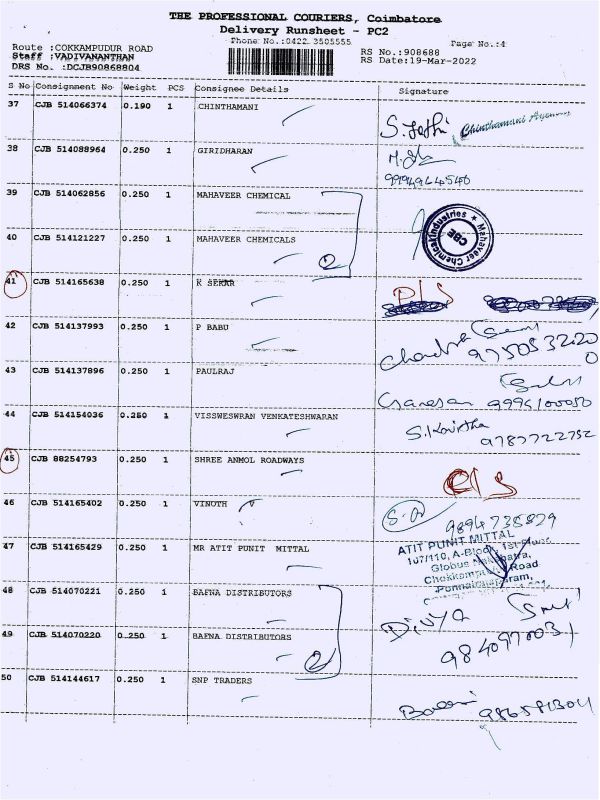 THE PROFESSIONAL COURIERS, Coimbatore
Delivery Runsheet - PC2
Phone No.:0422 3505555
Page No.:4
Route :COKKAMPUDUR ROAD
RS No.:908688
Staff :VADIVANANTHAN
RS Date:19-Mar-2022
DRS No. :DCJB90868804
S No Consignment No Weight PCS Consignee Details Signature
37 CJB 514066374 0.190 1 CHINTHAMANI
Chinthamani
38 CJB 514088964 0.250 1 GIRIDHARAN
9994944540
39 CJB 514062856 0.250 1 MAHAVEER CHEMICAL
40 CJB 514121227 0.250 1 MAHAVEER CHEMICALS
2
Mahaveer Chemical Industries
CBE
41 CJB 514165638 0.250 1 K SEKAR
42 CJB 514137993 0.250 1 P BABU
43 CJB 514137896 0.250 1 PAULRAJ
Ganesan 9994100050
44 CJB 514154036 0.250 1 VISSWESWRAN VENKATESHWARAN
S.Kavitha
9787722752
45 CJB 88254793 0.250 1 SHREE ANMOL ROADWAYS
46 CJB 514165402 0.250 1 VINOTH V
9894735829
47 CJB 514165429 0.250 1 MR ATIT PUNIT MITTAL
ATIT PUNIT MITTAL
107/110, A-Block, 1st
Globus
Road
48 CJB 514070221 0.250 1 BAFNA DISTRIBUTORS
DIVYA
49 CJB 514070220 0.250 1 BAFNA DISTRIBUTORS
2
50 CJB 514144617 0.250 1 SNP TRADERS
9865781304